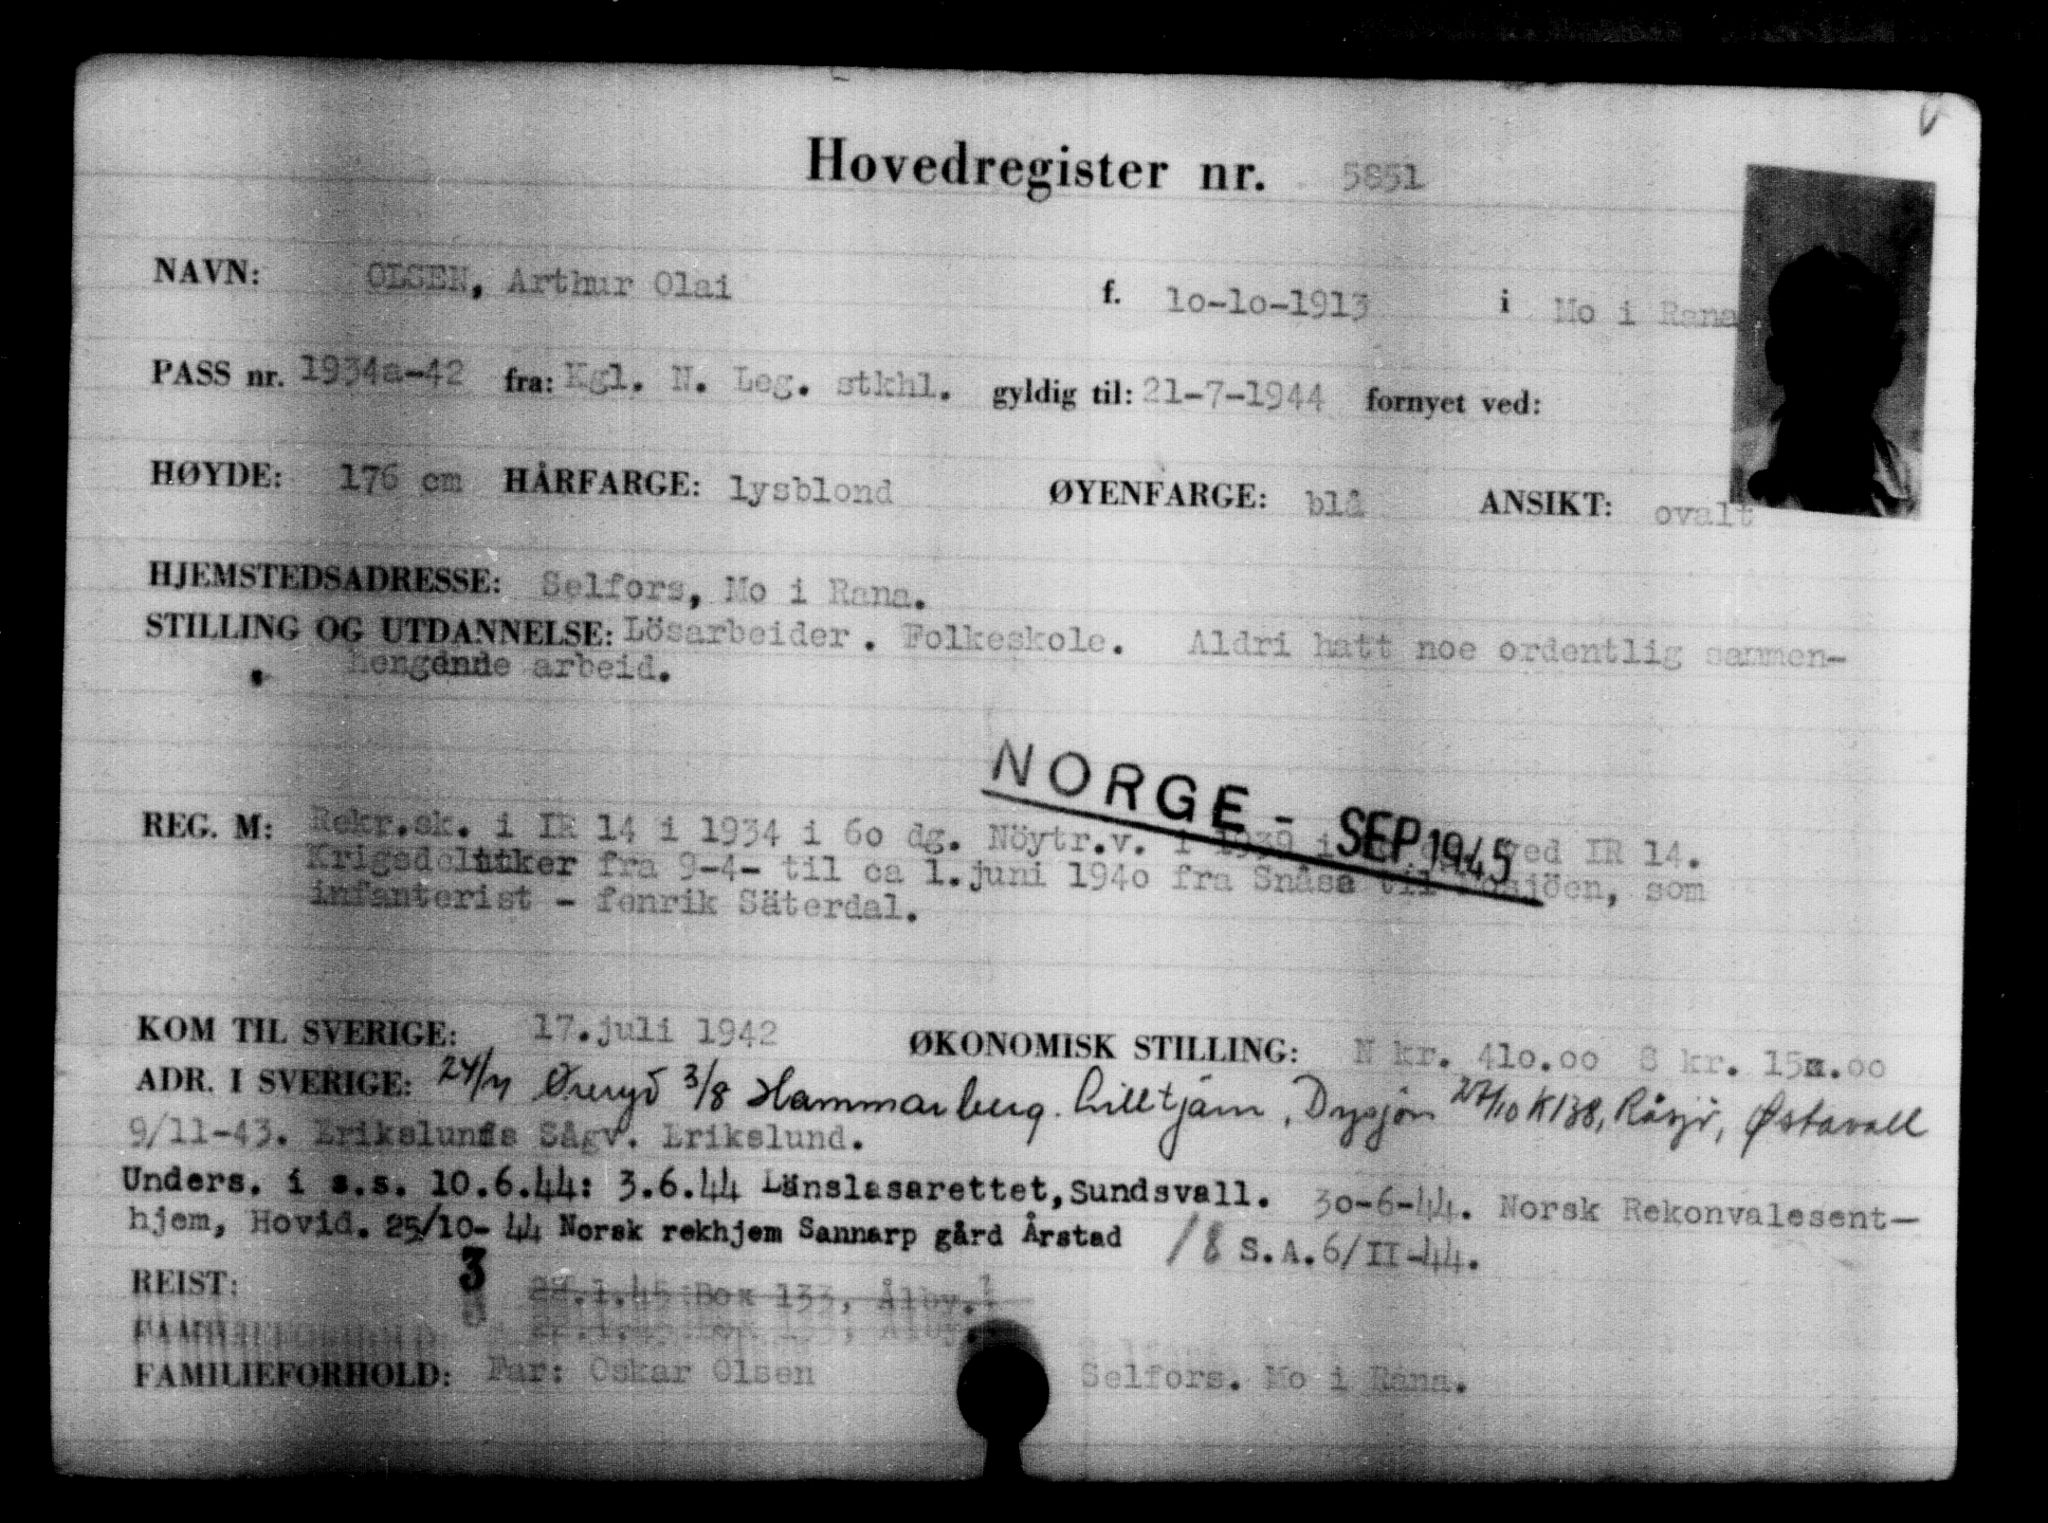 Hovedregister nr. 5851
NAVN: OLSEN, Arthur Olai f. 10-10-1913 i Mo i Rana
PASS nr. 1934a-42 fra: Kgl. N. Leg. stkhl. gyldig til: 21-7-1944 fornyet ved:
HØYDE: 176 cm HÅRFARGE: lysblond ØYENFARGE: blå ANSIKT: ovalt
HJEMSTEDSADRESSE: Selfors, Mo i Rana.
STILLING OG UTDANNELSE: Lösarbeider. Folkeskole. Aldri hatt noe ordentlig sammen-
hengende arbeid.
NORGE - SEP 1945
REG. M: Rekr.sk. i IR 14 i 1934 i 60 dg. Nöytr.v. i 1939 i ved IR 14.
Krigsdeltaker fra 9-4- til ca 1.juni 1940 fra Snåsa til Mosjöen, som
infanterist - fenrik Säterdal.
KOM TIL SVERIGE: 17.juli 1942 ØKONOMISK STILLING: N kr. 410.00 S kr. 15.00
ADR. I SVERIGE: 24/7 Øreryd 3/8 Hammarberg. Lilltjärn, Dysjön 27/10 K138, Råsjö, Østavall
9/11-43. Erikslunds Sågv. Erikslund.
Unders. i s.s. 10.6.44: 3.6.44 Länslasarettet, Sundsvall. 30-6-44. Norsk Rekonvalesent-
hjem, Hovid. 25/10-44 Norsk rekhjem Sannarp gård Årstad /8 S.A.6/II-44.
REIST: 3 22.1.45:Box 133, Ålby.
FAMILIEFORHOLD: Far: Oskar Olsen Selfors. Mo i Rana.